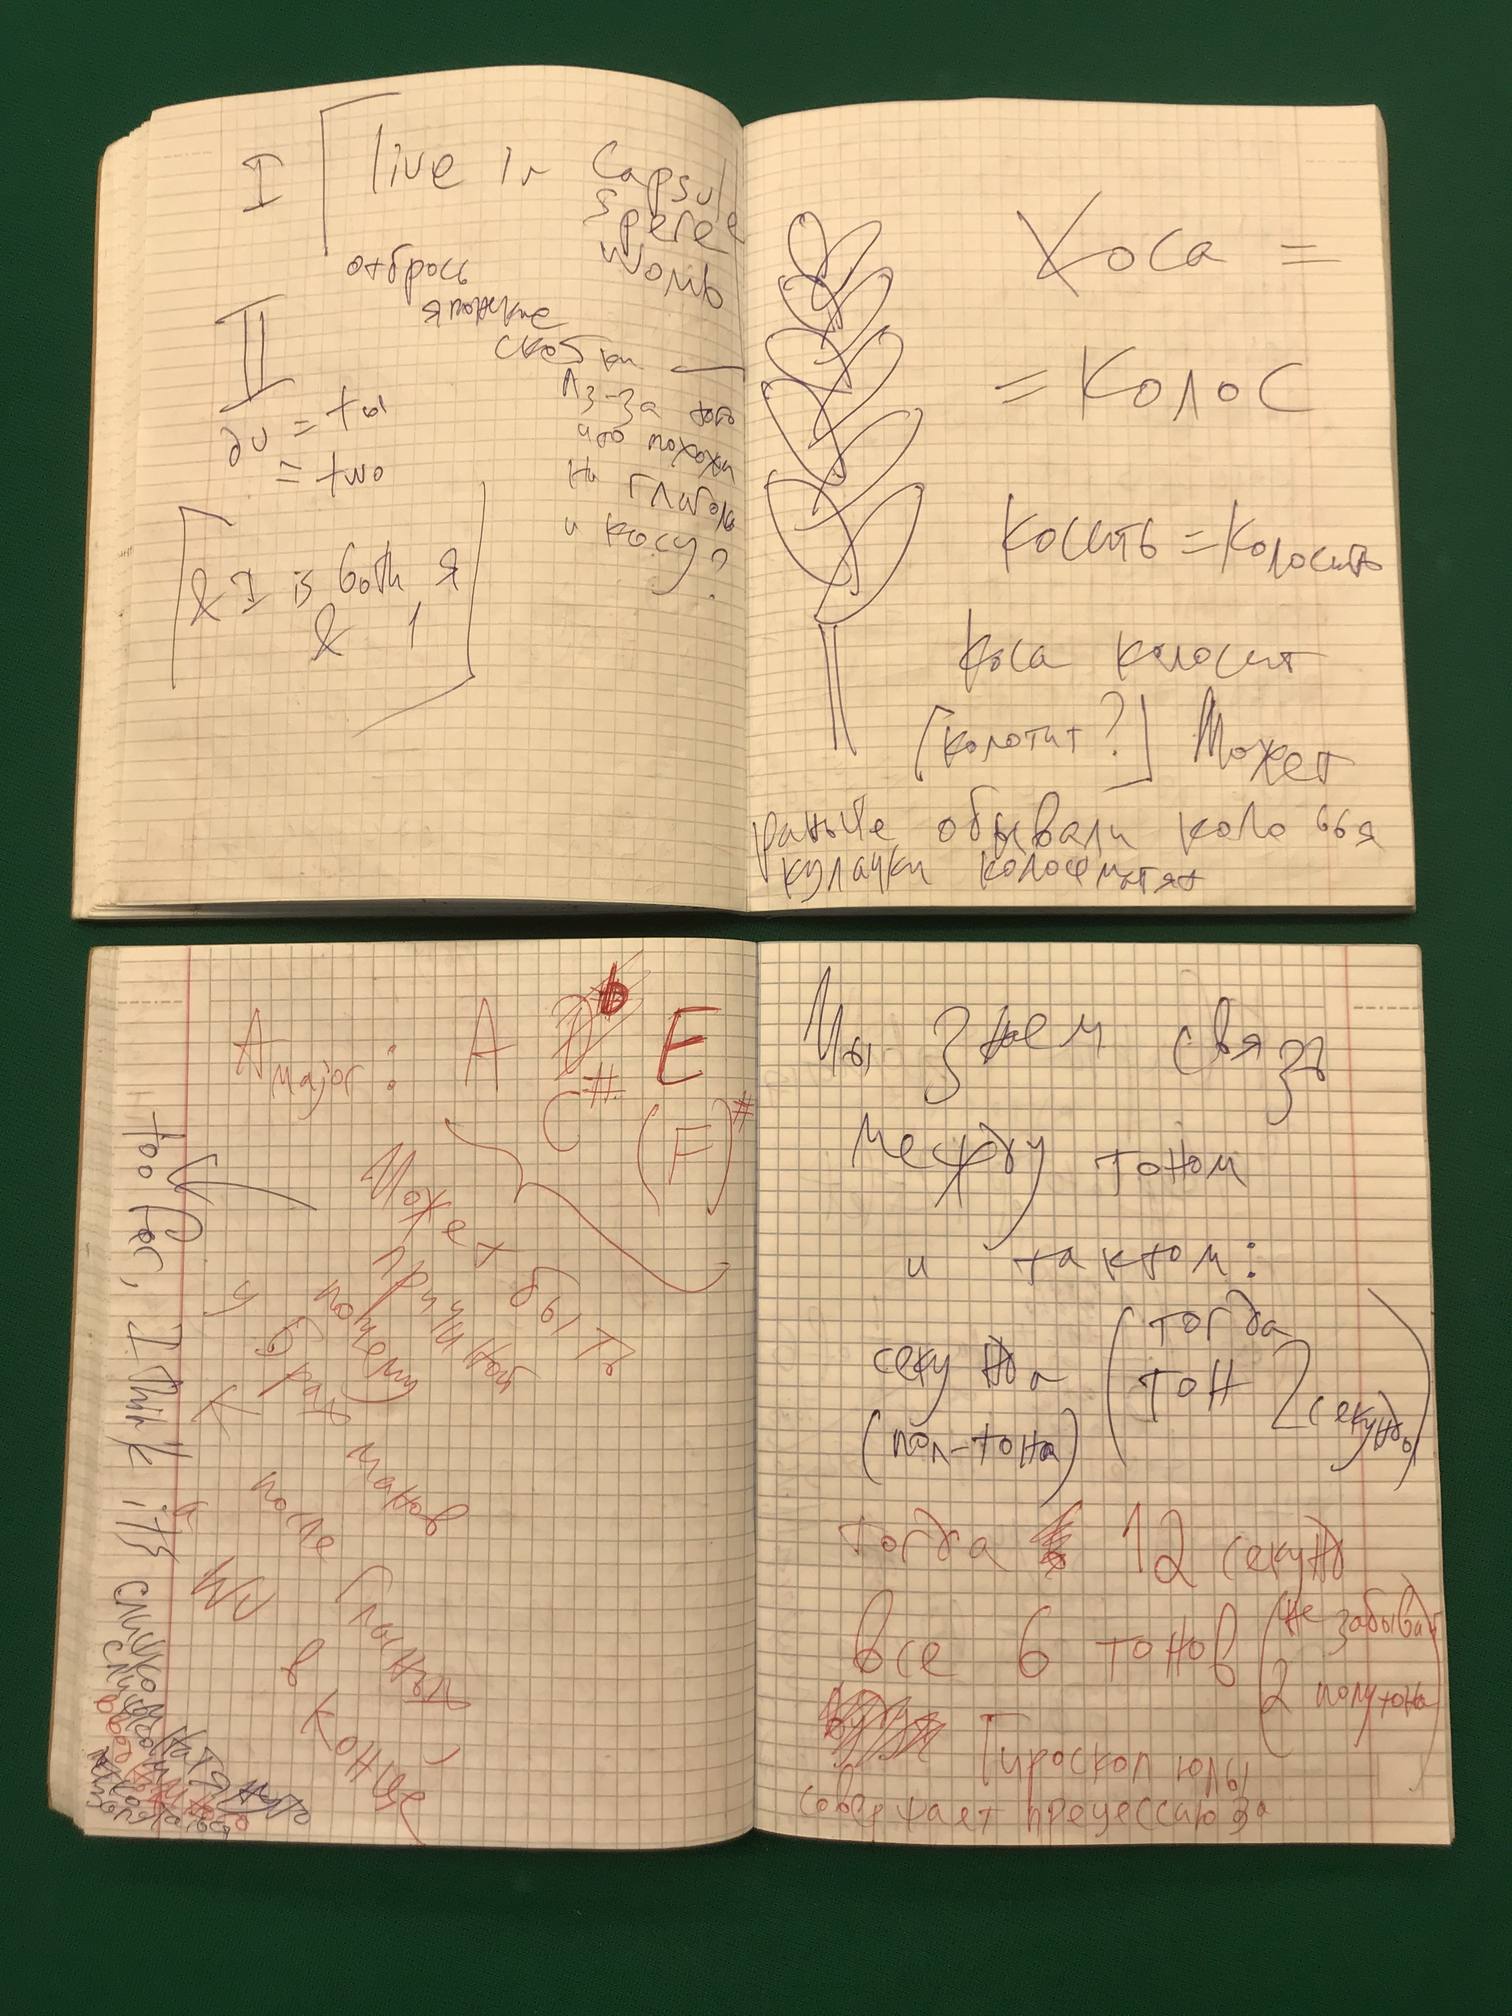 I live in Capsule
Spere
Womb
отбрось
японские
скобки —
Из-за того
что похожи
на глаголь
и косу?
II
du = ты
= two
& I is both я
& 1
Коса =
= Колос
Косить = Колосить
Коса колосит
[колотит?] Может
раньше обывали колосья
кулачки
A major: A D♭ E
C# (F)#
Может быть
причиной
почему
у брат
К
манов
после
а
не гласных
в конце
too far, I think it's слишком
натянуто
Мы знаем связь
между тоном
и тактом:
секунда (тогда
тон 2 секунды)
(пол-тона)
тогда 12 секунд
все 6 тонов (не забывай
2 полутона)
Гироскоп юлы
совершает прецессию за